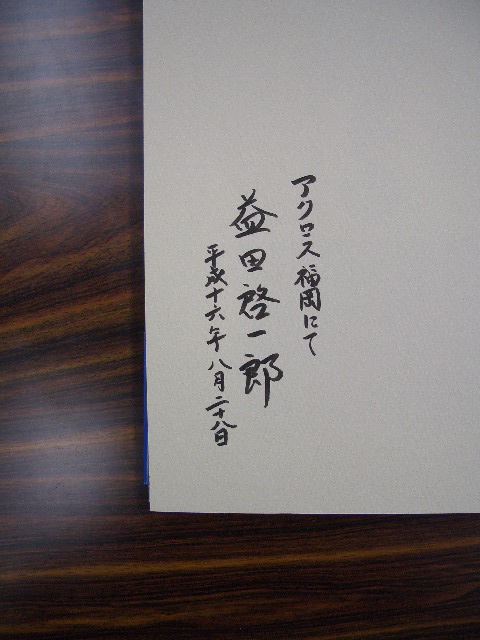 アクロス福岡にて
益田啓一郎
平成十六年八月二十八日